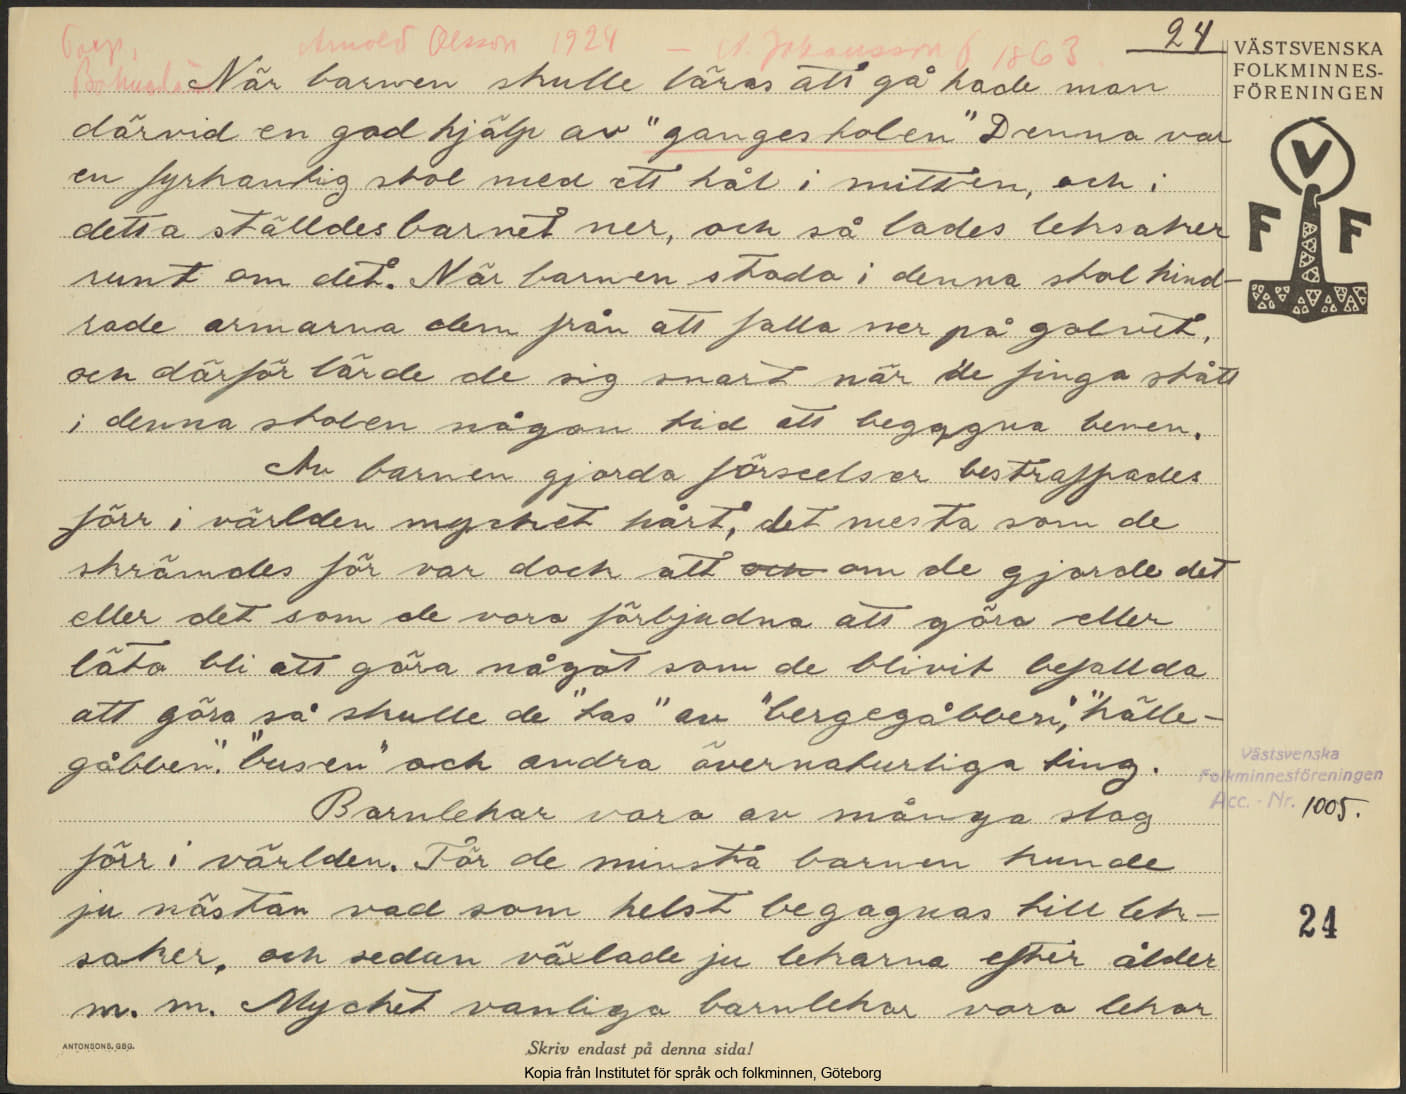 24
VÄSTSVENSKA
FOLKMINNES-
FÖRENINGEN
Arnold Olsson 1924 – A. Johansson f 1863.
När barnen skulle läras att gå hade man
därvid en god hjälp av "gangestolen" Denna var
en fyrkantig stol med ett hål i mitten, och i
detta ställdes barnet ner, och så lades leksaker
runt om det. När barnen stodo i denna stol hind-
rade armarna dem från att falla ner på golvet,
och därför lärde de sig snart när de finga stått
i denna stolen någon tid att begagna benen.
Av barnen gjorda förseelser bestraffades
förr i världen mycket hårt, det mesta som de
skrämdes för var dock att och om de gjorde det
eller det som de voro förbjudna att göra eller
läto bli att göra något som de blivit befallda
att göra så skulle de "tas" av "bergegåbben", "hälle-
gåbben". "busen" och andra övernaturliga ting.
Barnlekar voro av många slag
förr i världen. För de minsta barnen kunde
ju nästan vad som helst begagnas till lek-
saker, och sedan växlade ju lekarna efter ålder
m. m. Mycket vanliga barnlekar voro lekar
V
F F
Västsvenska
Folkminnesföreningen
Acc. - Nr. 1005.
24
ANTONSONS, GBG.
Skriv endast på denna sida!
Kopia från Institutet för språk och folkminnen, Göteborg